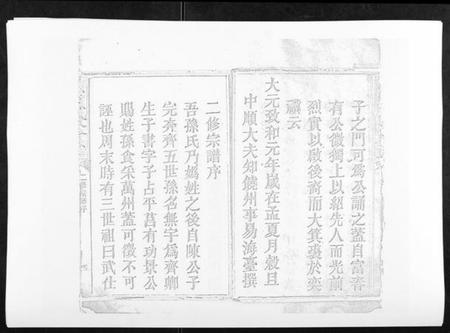 子之門可為公誦之蓋自富春
有公微獨上以紹先人而光前
烈實以啟後裔而大箕裘於奕
禩云
大元致和元年歲在孟夏月穀旦
中順大夫知饒州事易海臺撰
二修宗譜序
吾孫氏乃媯姓之後自陳公子
完奔齊五世孫名無宇為齊卿
生子書字子占平莒有功景公
賜姓孫食采萬州蓋可徵不可
誣也周末時有三世祖曰武仕
二修譜序